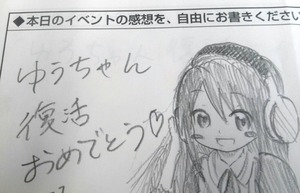 ◆本日のイベントの感想を、自由にお書きください
ゆうちゃん
復活
おめでとう♡